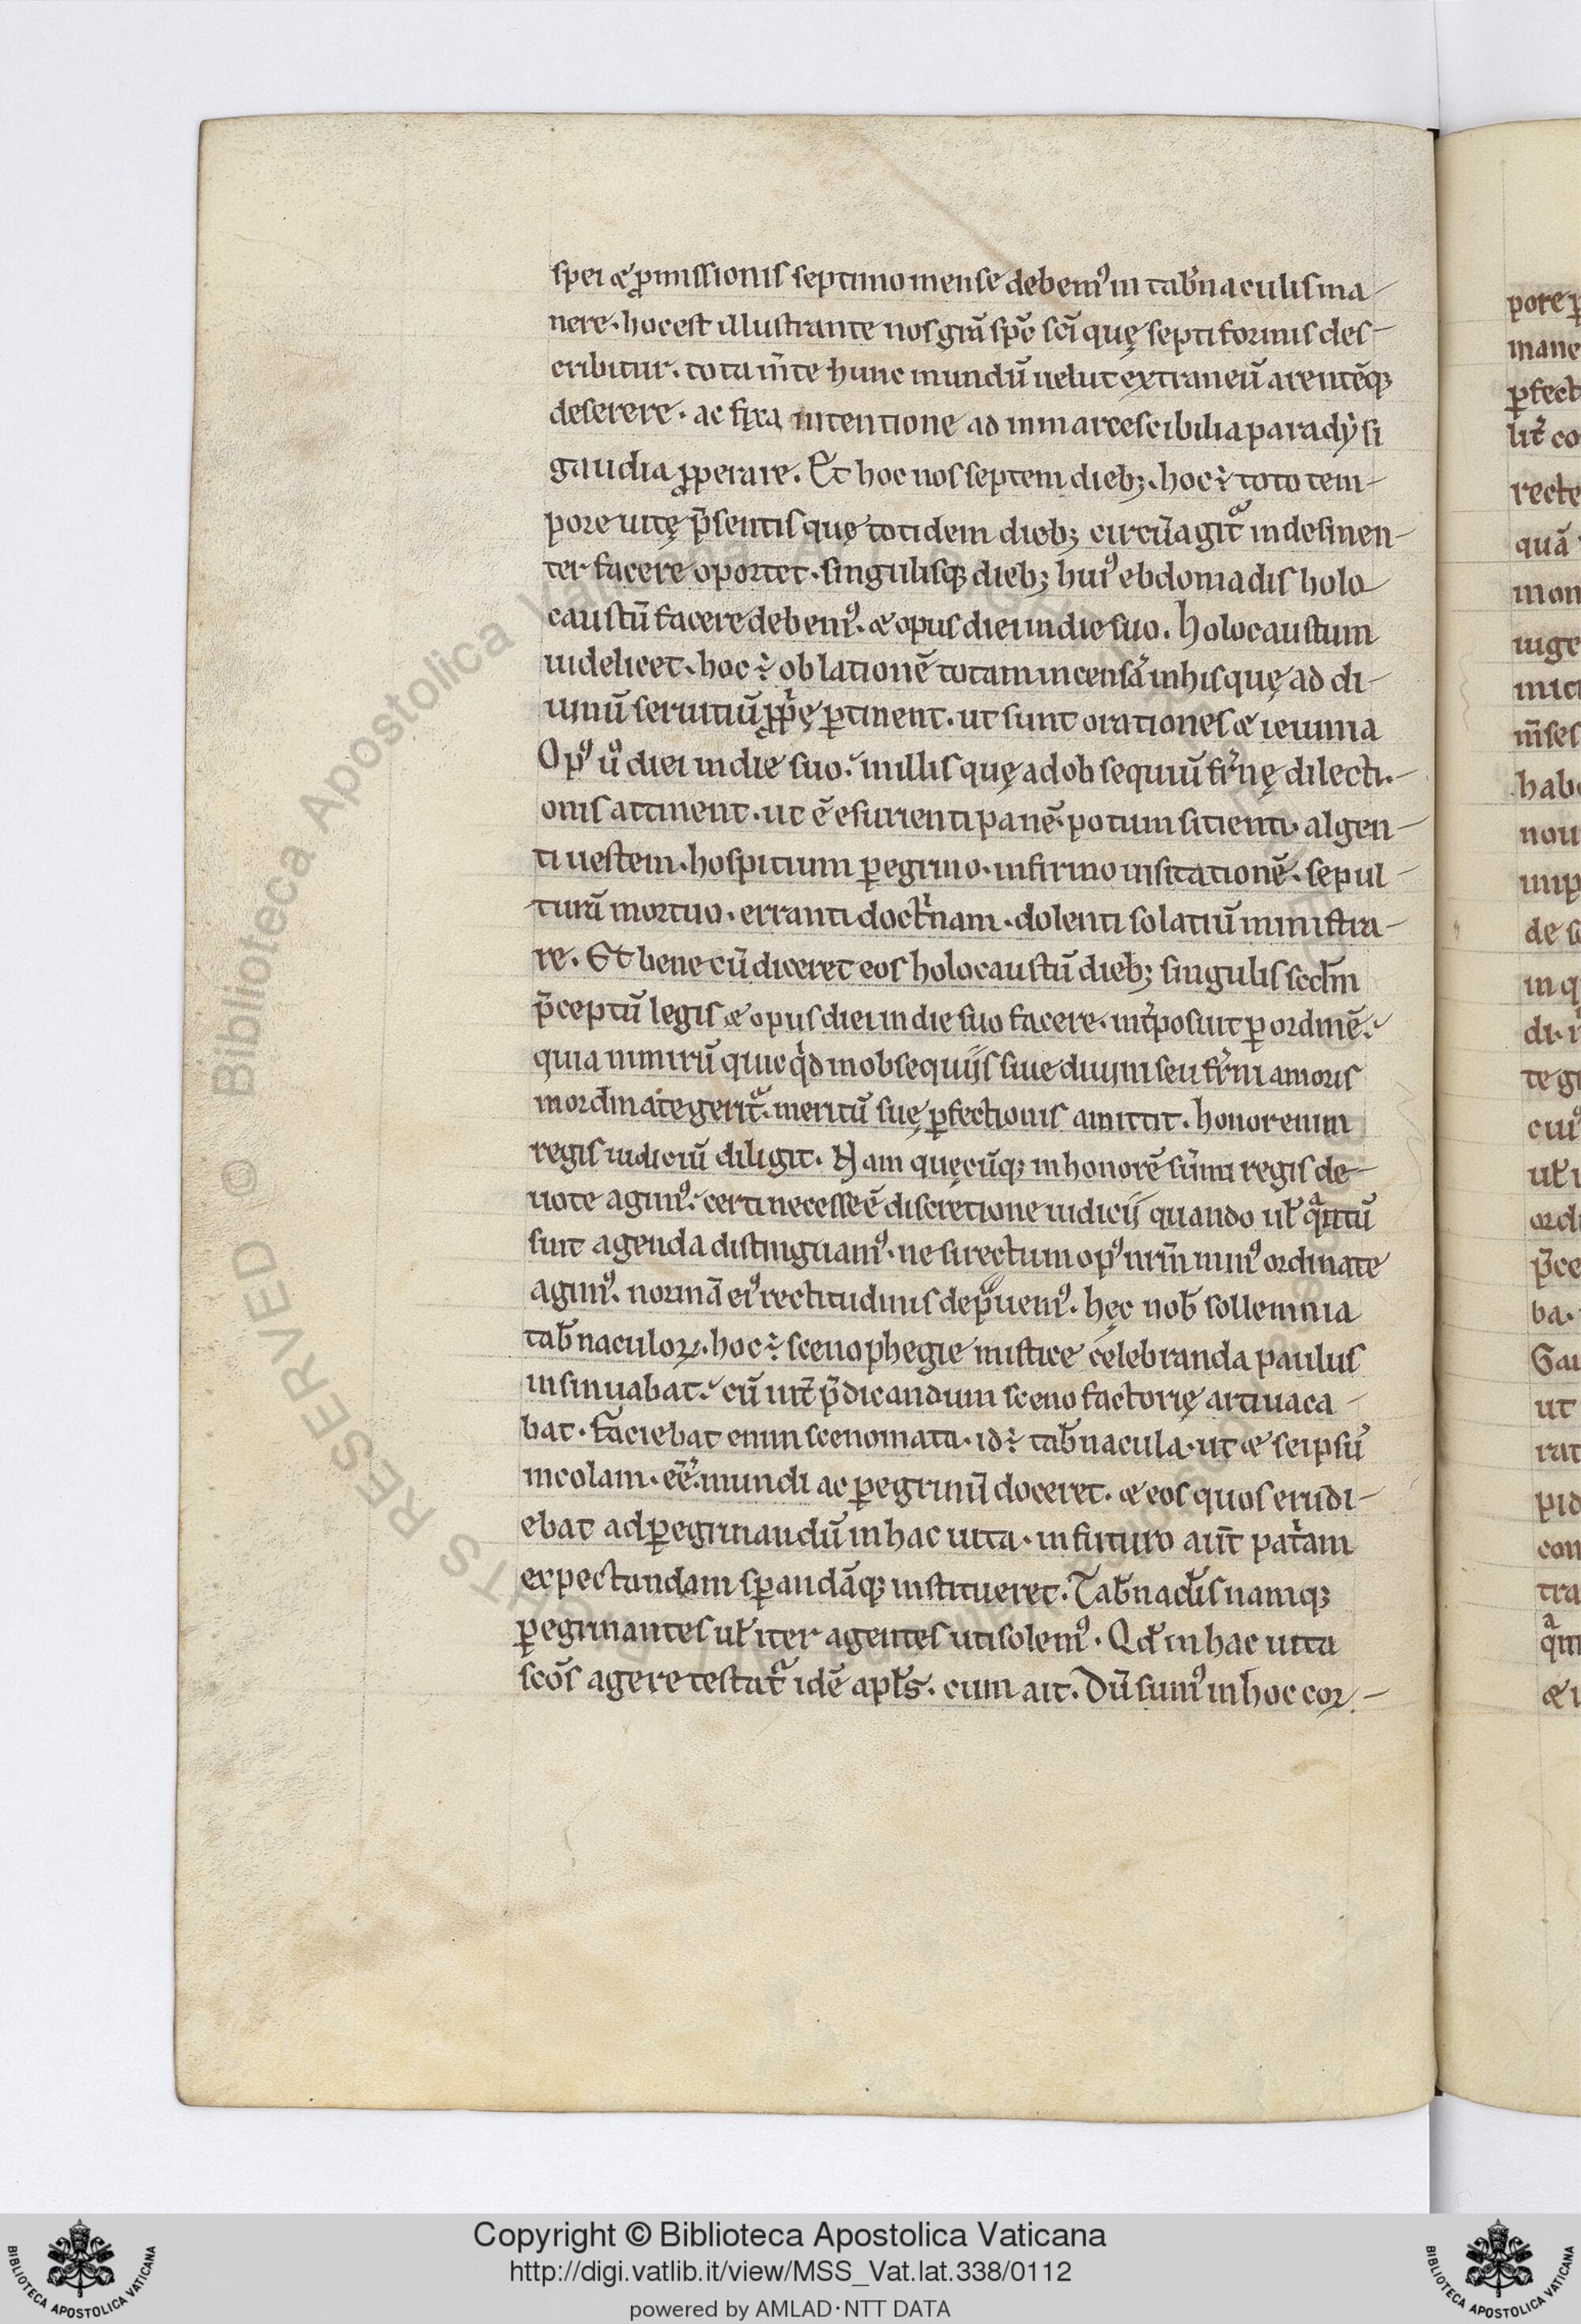 spei & ꝓmissionis septimo mense debemꝰ in tab̄naculis ma-
nere. hoc est illustrante nos grā sp̄c sc̄i quę septiformis des-
cribitur. tota m̄te hunc mundū uelut extraneū arentēq;
deserere. ac fixa intentione ad inmarcescibilia paradysi
gaudia ꝓperare. Et hoc nos septem dieb;. hoc ÷ toto tem-
pore uitę p̄sentis quę totidem dieb; circūagit᷑ indesinen-
ter facere oportet. singulisq; dieb; huiꝰ ebdomadis holo-
caustū facere debemꝰ. & opus diei in die suo. holocaustum
uidelicet. hoc ÷ oblationē totam incensā in his quę ad di-
uinū seruitiū ꝓp̄ę ꝑtinent. ut sunt orationes & ieiunia
Opꝰ ů diei in die suo. in illis quę ad obsequiū fr̄nę dilecti-
onis attinent. ut ē esurienti panē. potum sitienti. algen-
ti uestem. hospitium ꝑegrino. infirmo uisitationē. sepul-
turā mortuo. erranti doctͥnam. dolenti solatiū ministra-
re. Et bene cū diceret eos holocaustū dieb; singulis scd̄m
p̄ceptū legis & opus diei in die suo facere. int̄posuit ꝑ ordinē.
quia nimirū quicqͥd in obsequijs siue diuini seu fr̄ni amoris
inordinate gerit᷑. meritū suę ꝑfectionis amittit. honor enim
regis iudiciū diligit. Nam quęcūq; in honorē sūmi regis de-
uote agimꝰ. certi necesse ē discretione iudicij quando ut̄ qͣntū
sint agenda distinguamꝰ. ne si rectum opꝰ nr̄m minꝰ ordinate
agimꝰ. normā eiꝰ rectitudinis depͣuemꝰ. hęc nob̄ sollemnia
tab̄naculoꝝ. hoc ÷ scenophegie mistice celebranda paulus
insinuabat. cū int̄ p̄dicandum scenofactorię arti uaca-
bat. Faciebat enim scenomata. id ÷ tab̄nacula. ut & seipsū
incolam. eē. mundi ac ꝑegrinū doceret. & eos quos erudi-
ebat ad ꝑegrinandū in hac uita. in futuro aut̄ patͥam
expectandam sꝑandāq; institueret. Tab̄nac̄lis namq;
ꝑegrinantes ut̄ iter agentes uti solemꝰ. Qd̄ in hac uita
sc̄os agere testat᷑ idē apl̄s. cum ait. Dū sumꝰ in hoc cor-
pore
mane
ꝑfect
lit̄ co
recte
quā
mon
iuge
m̄ses
hab
nou
imp
de s
in q
di.
te g
cuiꝰ
ut̄
ordi
p̄ce
ba.
Gau
ut
rat
pid
con
tra
qͣm
Biblioteca Apostolica Vaticana
Copyright © Biblioteca Apostolica Vaticana
http://digi.vatlib.it/view/MSS_Vat.lat.338/0112
powered by AMLAD·NTT DATA
BIBLIOTECA APOSTOLICA VATICANA
BIBLIOTECA APOSTOLICA VATICANA